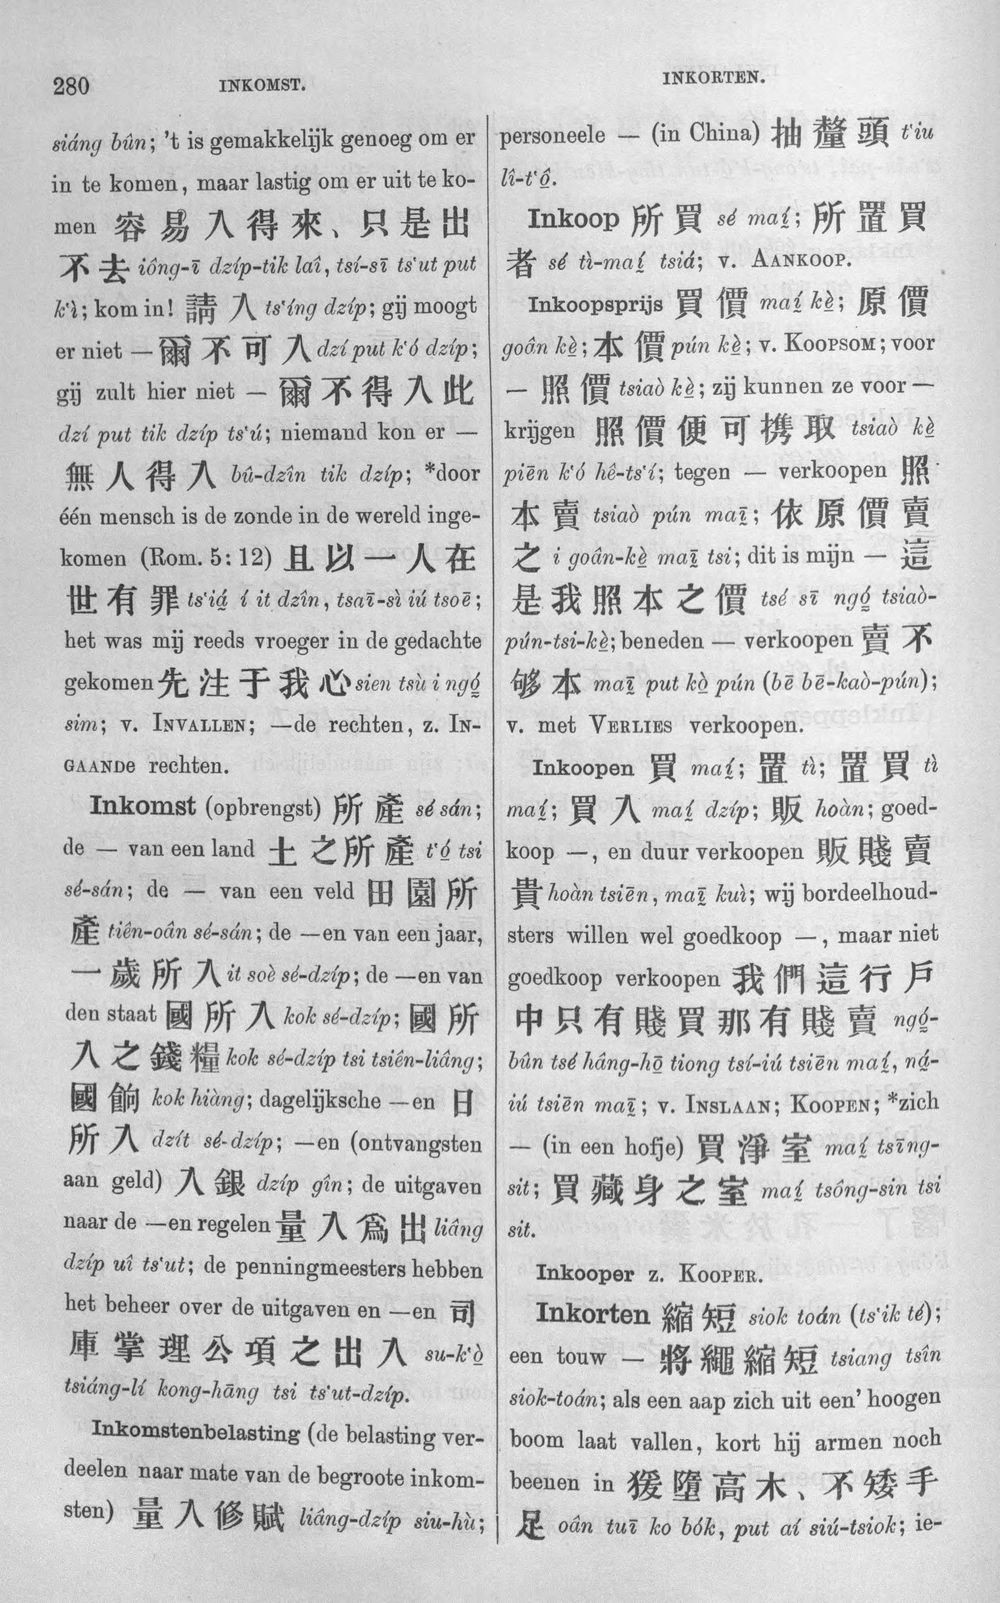 280
INKOMST.
INKORTEN.
siáng bûn; 't is gemakkelijk genoeg om er
in te komen, maar lastig om er uit te ko-
men 容易入得來、只是出
不去 iông-ī dzíp-tik laî, tsí-sī ts‘ut put
k‘ì; kom in! 請入 ts‘íng dzíp; gij moogt
er niet — 爾不可入 dzí put k‘ó dzíp;
gij zult hier niet — 爾不得入此
dzí put tik dzíp ts‘ú; niemand kon er —
無人得入 bû-dzîn tik dzíp; *door
één mensch is de zonde in de wereld inge-
komen (Rom. 5: 12) 且以一人在
世有罪 ts‘iá í it dzîn, tsaī-sì iú tsoē;
het was mij reeds vroeger in de gedachte
gekomen 先注于我心 sien tsù i ngó
sim; v. INVALLEN; —de rechten, z. IN-
GAANDE rechten.
Inkomst (opbrengst) 所產 sé sán;
de — van een land 土之所產 t‘ó tsi
sé-sán; de — van een veld 田園所
產 tiên-oân sé-sán; de —en van een jaar,
一歲所入 it soè sé-dzíp; de —en van
den staat 國所入 kok sé-dzíp; 國所
入之錢糧 kok sé-dzíp tsi tsiên-liâng;
國餉 kok hiàng; dagelijksche —en 日
所入 dzít sé-dzíp; —en (ontvangsten
aan geld) 入銀 dzíp gîn; de uitgaven
naar de —en regelen 量入爲出 liâng
dzíp uî ts‘ut; de penningmeesters hebben
het beheer over de uitgaven en —en 司
庫掌理公項之出入 su-k‘ò
tsiáng-lí kong-hāng tsi ts‘ut-dzíp.
Inkomstenbelasting (de belasting ver-
deelen naar mate van de begroote inkom-
sten) 量入修賦 liâng-dzíp siu-hù;
personeele — (in China) 抽釐頭 t‘iu
lî-t‘ô.
Inkoop 所買 sé maí; 所置買
者 sé tì-maí tsiá; v. AANKOOP.
Inkoopsprijs 買價 maí kè; 原價
goân kè; 本價 pún kè; v. KOOPSOM; voor
— 照價 tsiaò kè; zij kunnen ze voor —
krijgen 照價便可携取 tsiaò kè
piēn k‘ó hê-ts‘í; tegen — verkoopen 照
本賣 tsiaò pún maī; 依原價賣
之 i goân-kè maī tsi; dit is mijn — 這
是我照本之價 tsé sī ngó tsiaò-
pún-tsi-kè; beneden — verkoopen 賣不
够本 maī put kò pún (bē bē-kaò-pún);
v. met VERLIES verkoopen.
Inkoopen 買 maí; 置 tì; 置買 tì
maí; 買入 maí dzíp; 販 hoàn; goed-
koop —, en duur verkoopen 販賤賣
貴 hoàn tsiēn, maī kuì; wij bordeelhoud-
sters willen wel goedkoop —, maar niet
goedkoop verkoopen 我們這行戶
中只有賤買那有賤賣 ngó-
bûn tsé hâng-hō tiong tsí-iú tsiēn maí, ná-
iú tsiēn maī; v. INSLAAN; KOOPEN; *zich
— (in een hofje) 買淨室 maí tsīng-
sit; 買藏身之室 maí tsông-sin tsi
sit.
Inkooper z. KOOPER.
Inkorten 縮短 siok toán (ts‘ik té);
een touw — 將繩縮短 tsiang tsîn
siok-toán; als een aap zich uit een' hoogen
boom laat vallen, kort hij armen noch
beenen in 猨墮高木、不矮手
足 oân tuī ko bók, put aí siú-tsiok; ie-